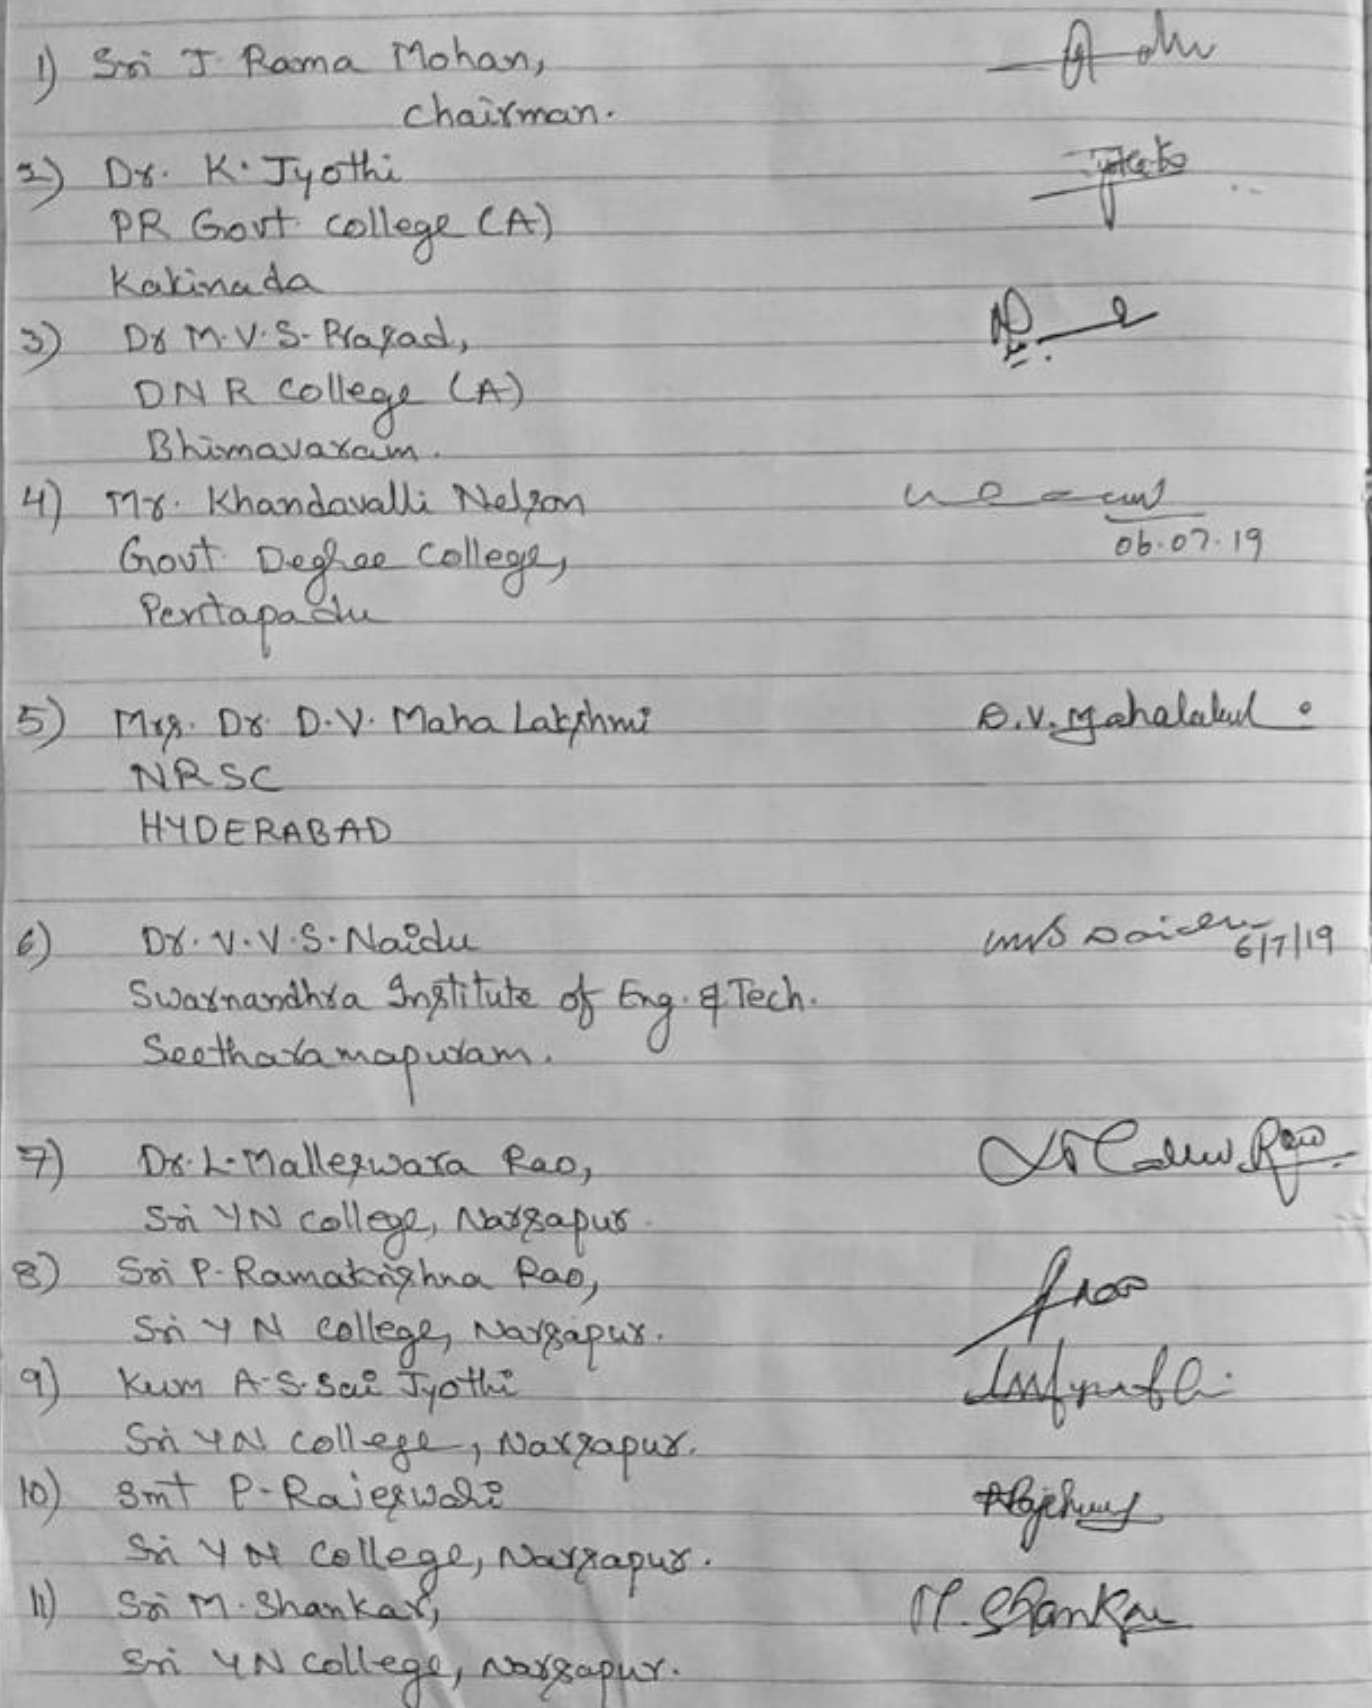 1) Sri J. Rama Mohan,
Chairman.
2) Dr. K. Jyothi
PR Govt. College (A)
Kakinada
3) Dr M.V.S. Prasad,
DNR College (A)
Bhimavaram.
4) Mr. Khandavalli Nelson
06.07.19
Govt Degree College,
Pentapadu
5) Mrs. Dr. D.V. Maha Lakshmi D.V. Mahalakshmi
NRSC
HYDERABAD
6) Dr. V.V.S. Naidu
6/7/19
Swarnandhra Institute of Eng. & Tech.
Seetharamapuram.
7) Dr. L. Malleswara Rao, Rao
Sri YN College, Narsapur.
8) Sri P. Ramakrishna Rao,
Sri Y N College, Narsapur.
9) Kum A.S. Sai Jyothi
Sri YN College, Narsapur.
10) Smt P. Rajeswari
Sri Y N College, Narsapur.
11) Sri M. Shankar, M. Shankar
Sri YN College, Narsapur.